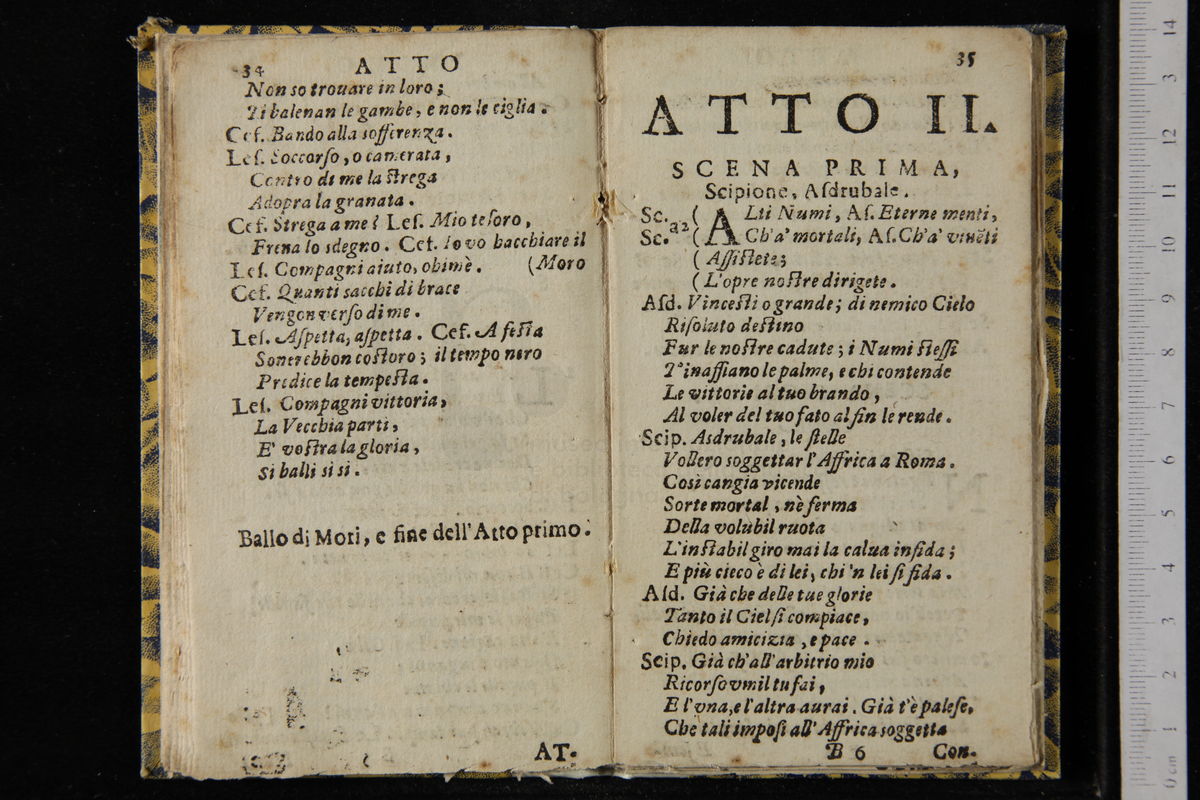 34 ATTO
Non so trouare in loro;
Ti balenan le gambe, e non le ciglia.
Ceſ. Bando alla sofferenza.
Leſ. Soccorſo, o camerata,
Contro di me la ſtrega
Adopra la granata.
Ceſ. Strega a me? Leſ. Mio teſoro,
Frena lo sdegno. Ceſ. Io vo bacchiare il
Leſ. Compagni aiuto, ohimè. (Moro
Ceſ. Quanti sacchi di brace
Vengon verſo di me.
Leſ. Aſpetta, aſpetta. Ceſ. A feſta
Sonerebbon coſtoro; il tempo nero
Predice la tempeſta.
Leſ. Compagni vittoria,
La Vecchia parti,
E' voſtra la gloria,
Si balli si si.
Ballo di Mori, e fine dell'Atto primo.
AT-
35
ATTO II.
SCENA PRIMA,
Scipione, Aſdrubale.
Sc. a 2 ( ALti Numi, Aſ. Eterne menti,
Sc. ( Ch'a' mortali, Aſ. Ch'a' viuẽti
( Aſſiſtete;
( L'opre noſtre dirigete.
Aſd. Vinceſti o grande; di nemico Cielo
Riſoluto deſtino
Fur le noſtre cadute; i Numi ſteſſi
T'inaffiano le palme, e chi contende
Le vittorie al tuo brando,
Al voler del tuo fato al fin le rende.
Scip. Asdrubale, le ſtelle
Vollero soggettar l'Affrica a Roma.
Così cangia vicende
Sorte mortal, nè ferma
Della volubil ruota
L'inſtabil giro mai la calua infida;
E più cieco è di lei, chi 'n lei ſi fida.
Aſd. Già che delle tue glorie
Tanto il Ciel ſi compiace,
Chiedo amicizia, e pace.
Scip. Già ch'all'arbitrio mio
Ricorſo vmil tu fai,
E l'vna, e l'altra aurai. Già t'è paleſe,
Che tali impoſi all'Affrica soggetta
B 6 Con-